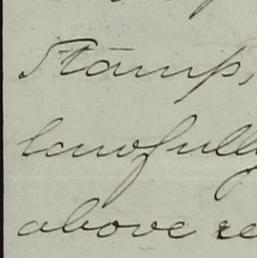 Stamp,
lawfully
above re